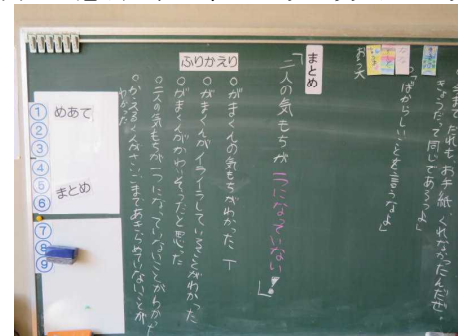 今まで だれも、お手紙、くれなかったんだぜ。
きょうだって同じだろうよ」
「ばからしいことを言うなよ」
おっ
まとめ
「二人の気もちが 一つになっていない
ふりかえり
○がまくんの気もちがわかった。T
○がまくんがイライラしていることがわかった
○がまくんがかわいそうだと思った
○二人の気もちが一つになっていないことがわかった
○かえるくんがさいごまであきらめていないことが
わかった
① めあて
②
③
④
⑤
⑥ まとめ
⑦
⑧
⑨